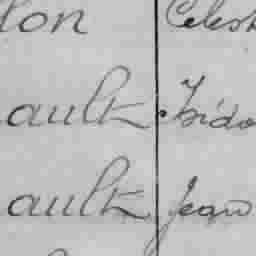 lon Celest
ault Isido
ault Jean